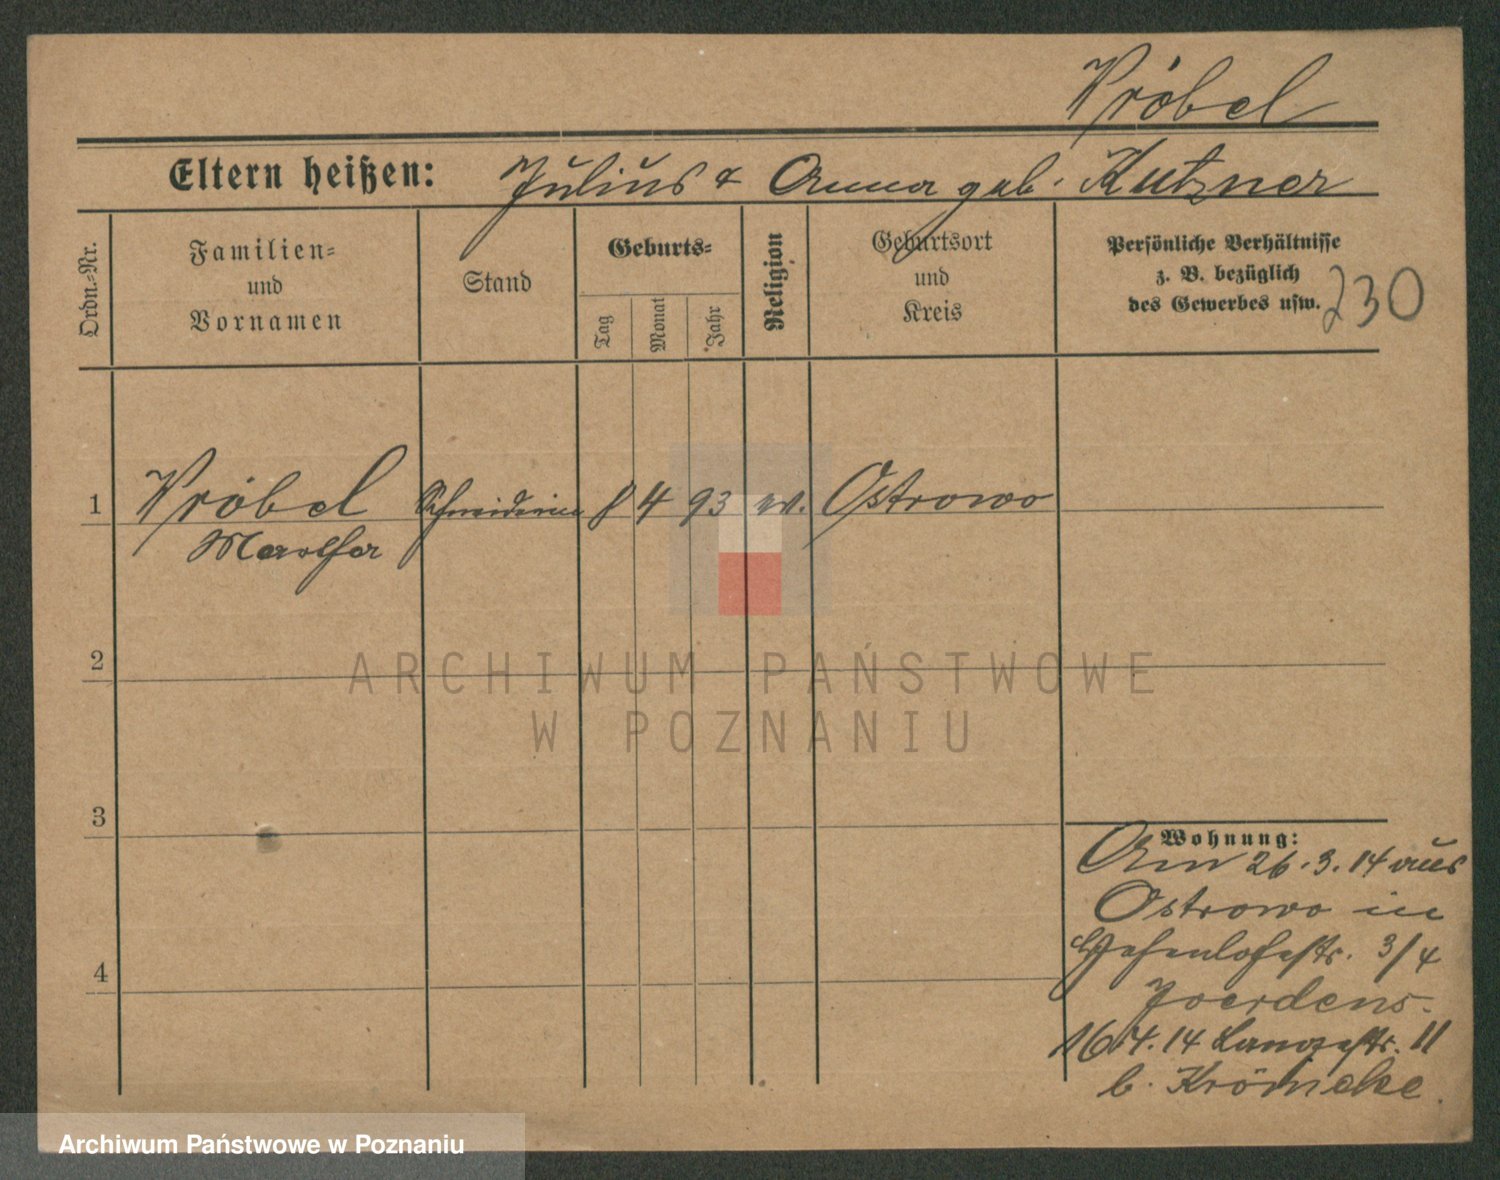 Wróbel
Eltern heißen: Julius & Anna geb. Kutzner
Ordn.-Nr.
Familien-
und
Vornamen
Stand
Geburts-
Tag
Monat
Jahr
Religion
Geburtsort
und
Kreis
Persönliche Verhältnisse
z. B. bezüglich
des Gewerbes usw.
230
1 Wróbel Schneiderin 8 4 93 Ostrowo
Martha
2
3
4
Wohnung:
Am 26.3.14 aus
Ostrowo in
Hohenlohestr. 3/4
Joerdens.
16.4.14 Langestr. 11
b. Krömcke.
ARCHIWUM PAŃSTWOWE
W POZNANIU
Archiwum Państwowe w Poznaniu